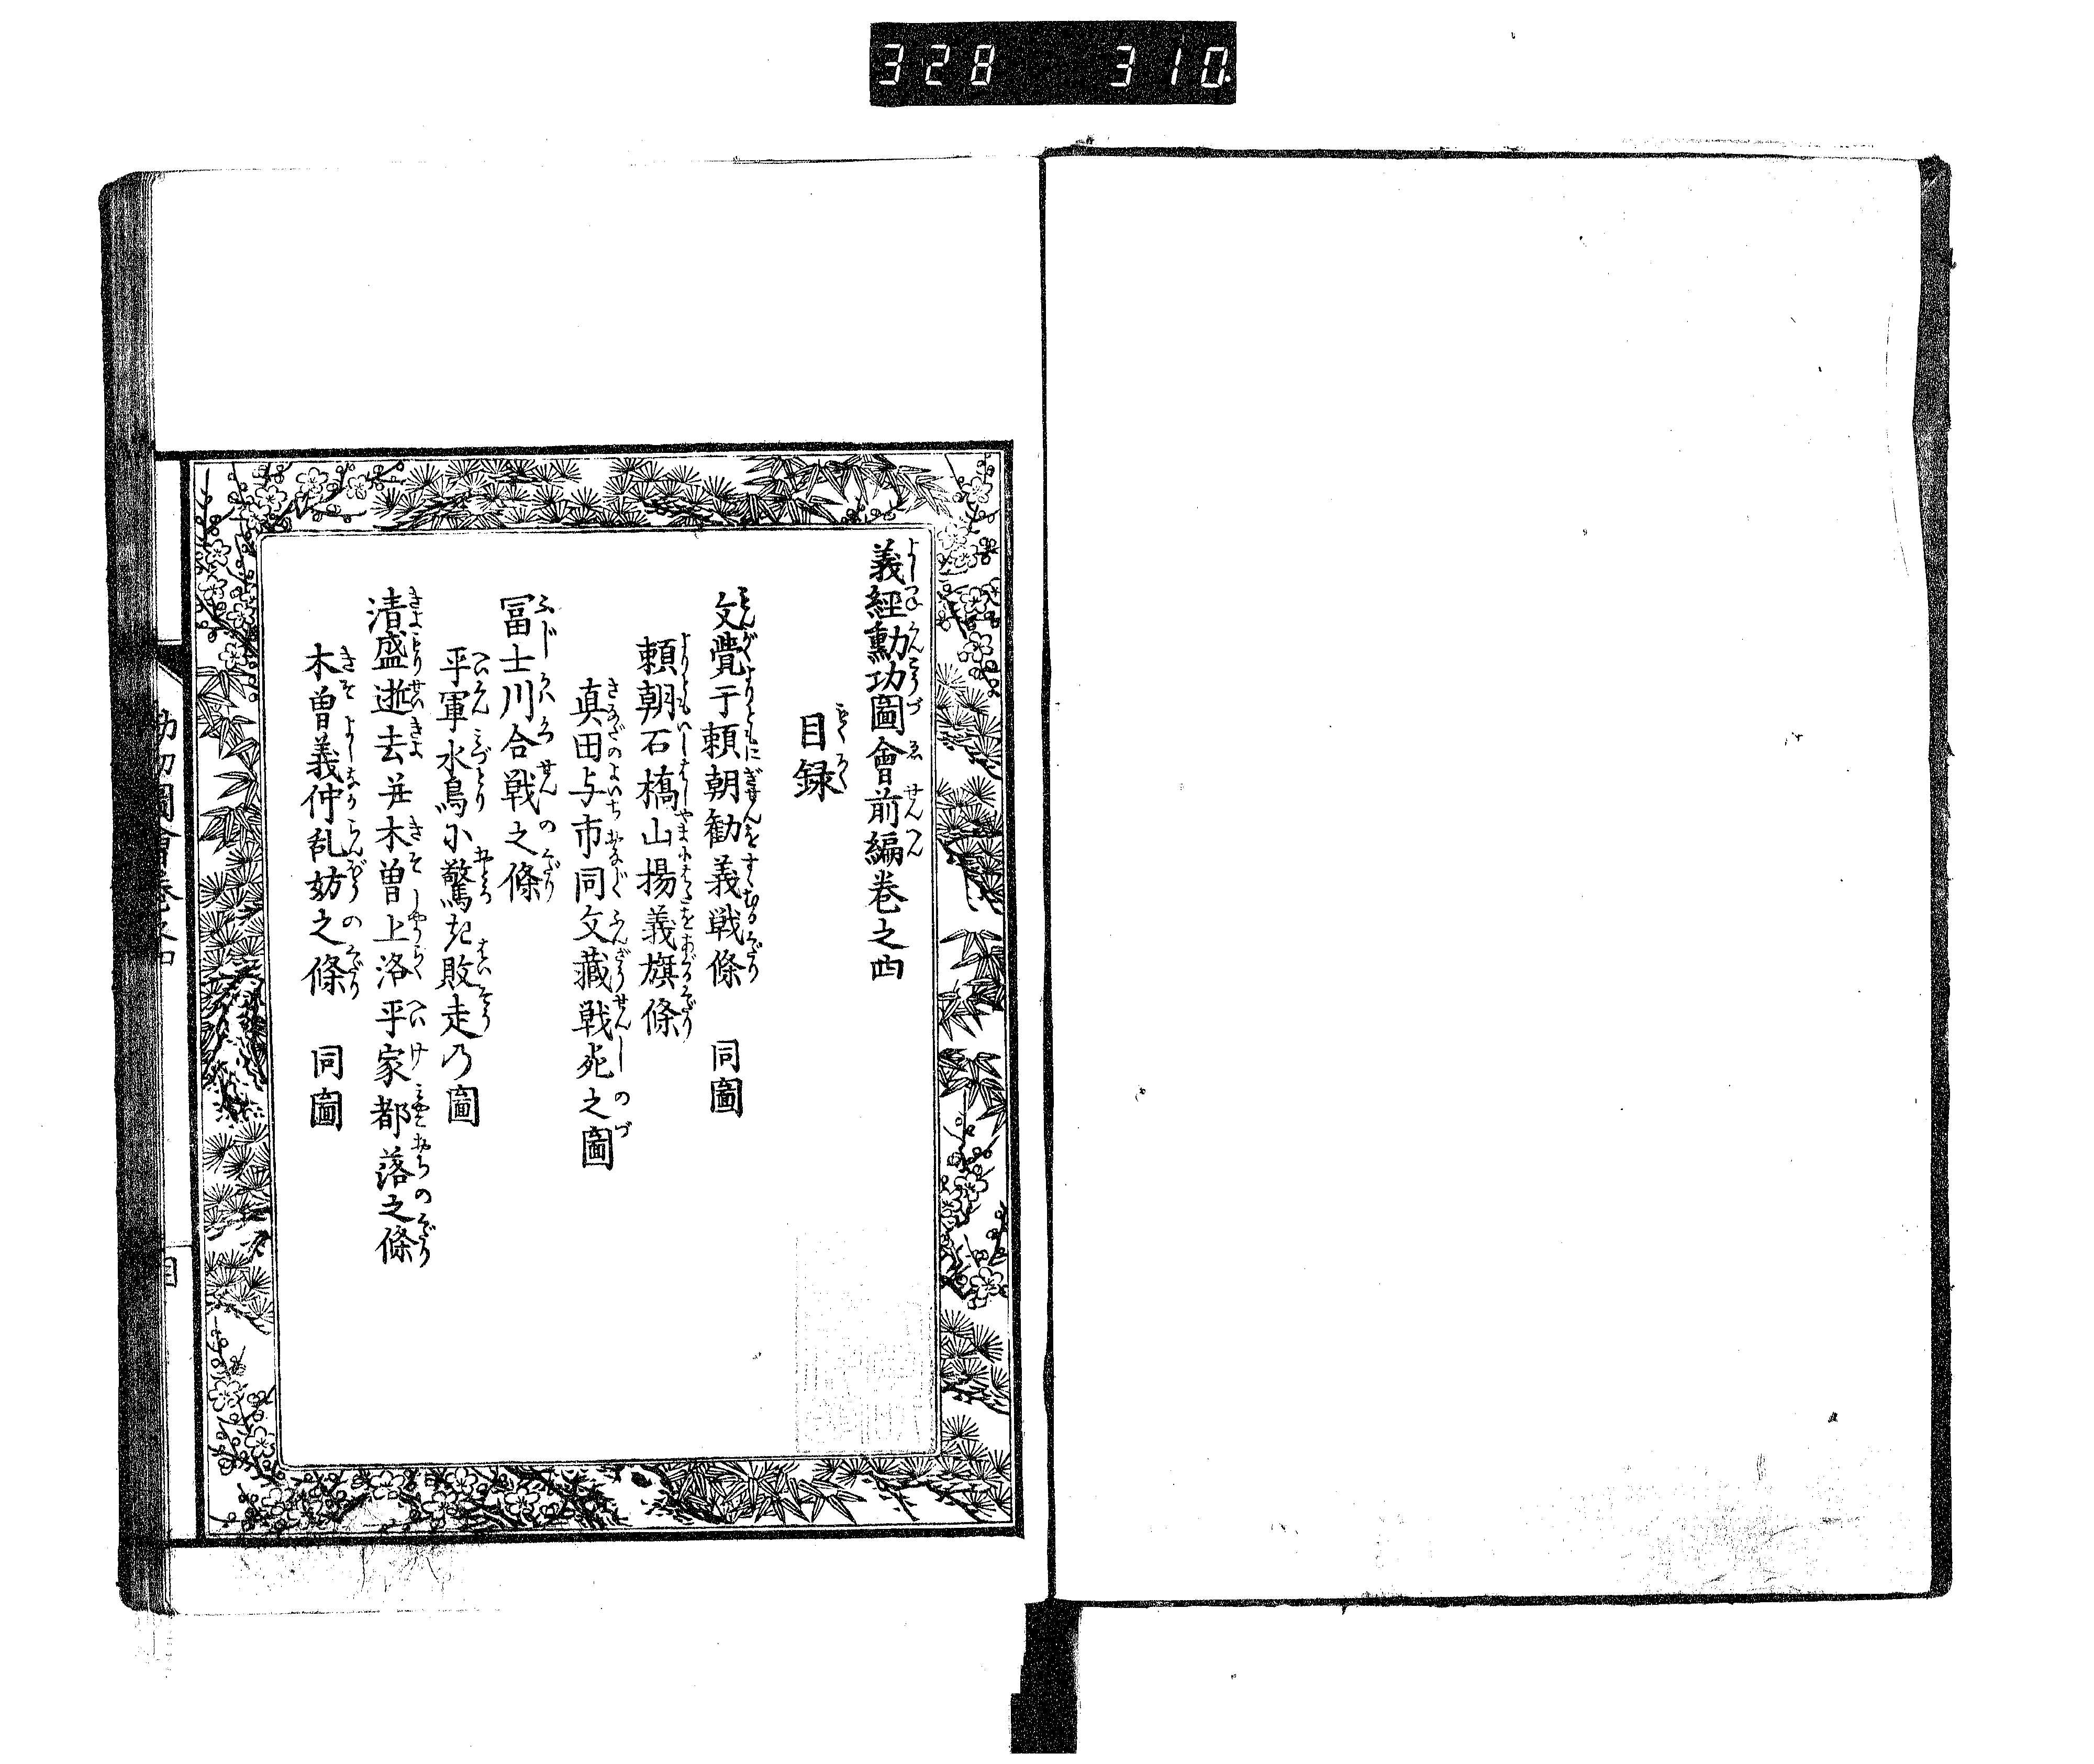 328 310
義經勳功圖會前編卷之四
目録
文覺于頼朝勧義戦條 同圖
頼朝石橋山揚義旗條
真田与市同文藏戦死之圖
冨士川合戦之條
平軍水鳥小驚き敗走乃圖
清盛逝去并木曽上洛平家都落之條
木曽義仲乱妨之條 同圖